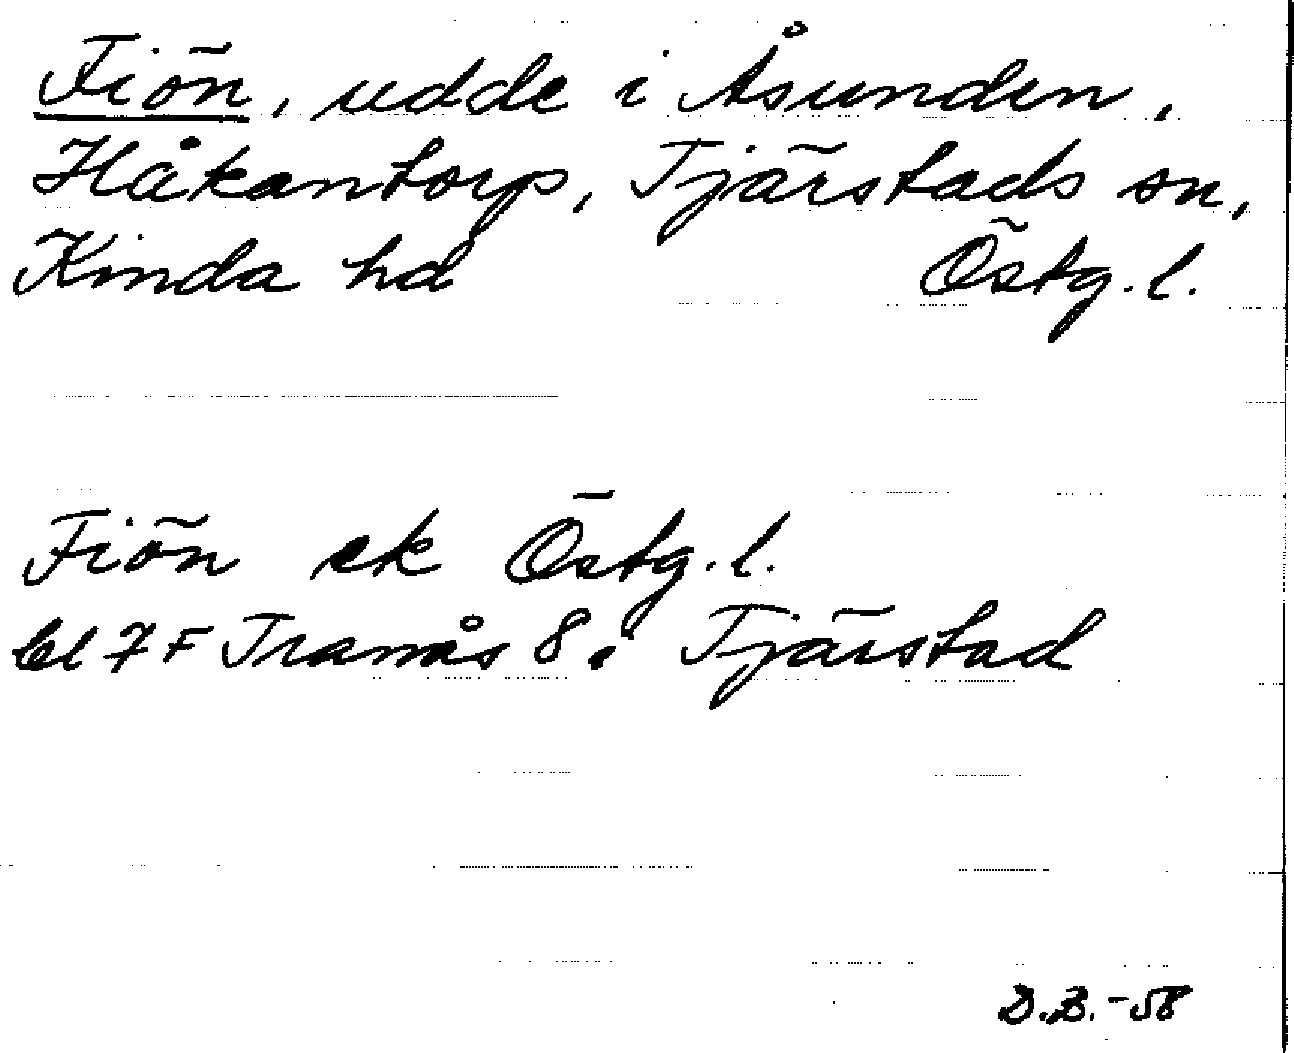 Fiön, udde i Åsunden,
Håkantorp, Tjärstads sn,
Kinda hd Östg.l.
Fiön ek Östg.l.
bl 7F Tranås 8. Tjärstad
D.B.-58